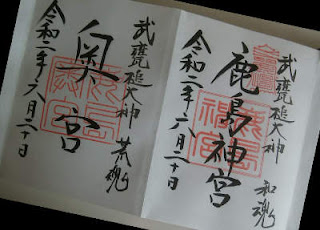 武甕槌大神 和魂
鹿島神宮
令和二年六月二十日
武甕槌大神 荒魂
奥宮
令和二年六月二十日